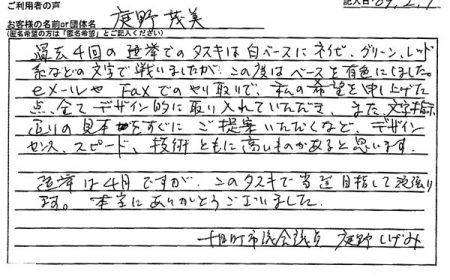 ご利用者の声
記入日: 09. 2. 9
お客様の名前or団体名
(匿名希望の方は「匿名希望」とご記入ください)
庭野 茂美
過去4回の選挙でのタスキは白ベースにネイビ、グリーン、レッド
系などの文字で戦いましたが、この度はベースを有色にしました。
eメールや Faxでのやり取りで、私の希望を申し上げた
点、全てデザイン的に取り入れていただき、また、文字指示
辺りの見本もすぐに ご提案いただくなど、デザイン
センス、スピード、技術 ともに高いものがあると思います。
選挙は4月ですが、このタスキで当選目指して頑張り
ます。本当にありがとうございました。
十日町市議会議員 庭野しげみ